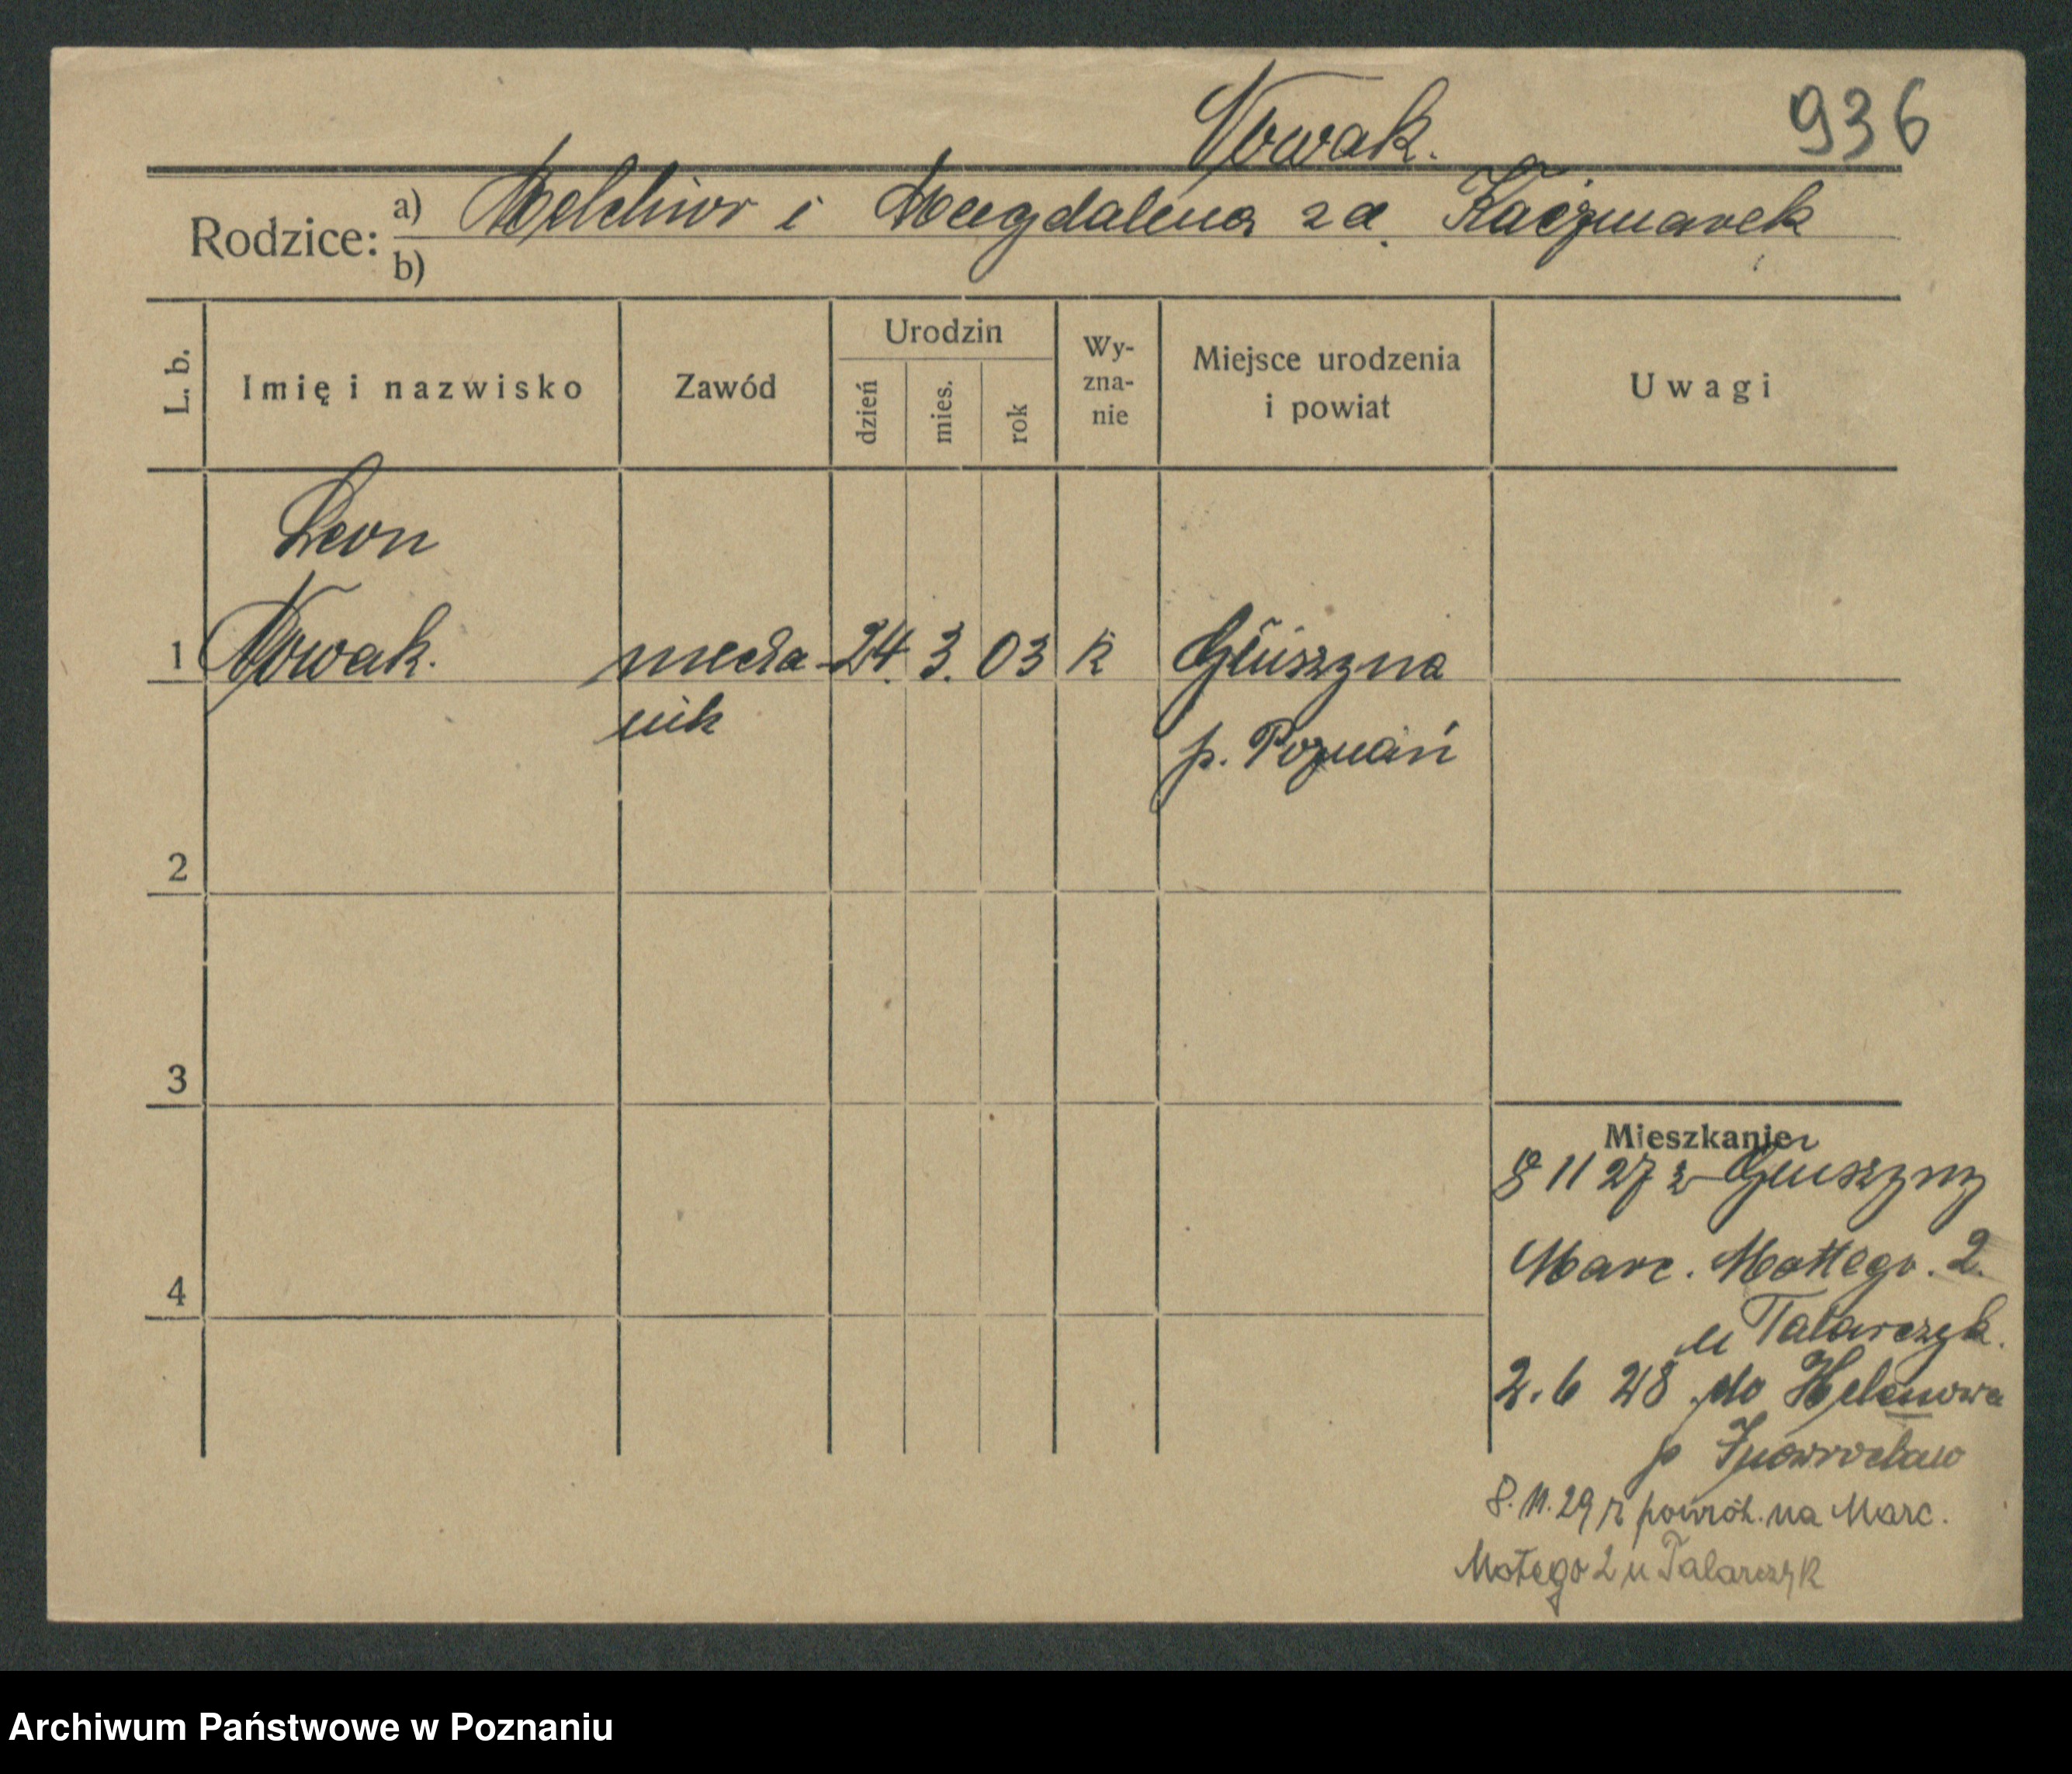 Nowak.
936
Rodzice:
a) Melchior i Magdalena za. Kaczmarek
b)
L. b.
Imię i nazwisko
Zawód
Urodzin
dzień
mies.
rok
Wy-
zna-
nie
Miejsce urodzenia
i powiat
Uwagi
Leon
1 Nowak. mecha- 24. 3. 03 k Głuszyna
nik
p. Poznań
2
3
4
Mieszkanie
8 11 27 z Głuszyny
Marc. Mottego. 2.
u Talarczyk.
2. 6 28 do Helenowa
p Inowrocław
8. 11. 29 r powróc. na Marc.
Motego 2 u Talarczyk
Archiwum Państwowe w Poznaniu